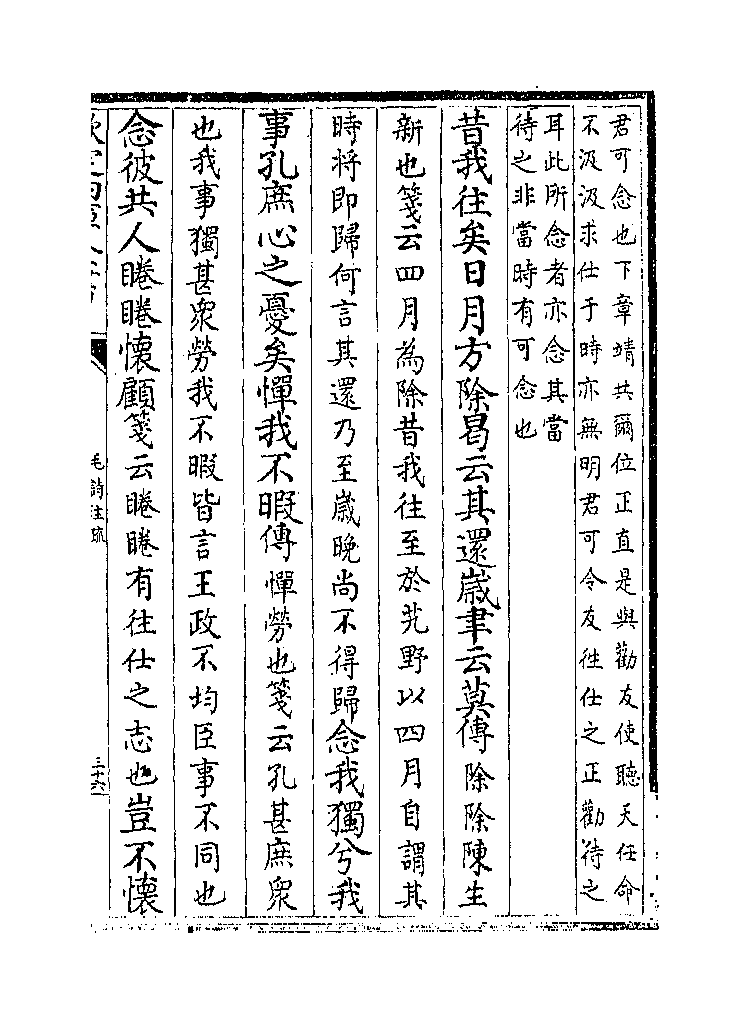 君可念也下章靖共爾位正直是與勸友使聽天任命
不汲汲求仕于時亦無明君可令友徃仕之正勸待之
耳此所念者亦念其當
待之非當時有可念也
昔我往矣日月方除曷云其還歳聿云莫傳除除陳生
新也箋云四月為除昔我往至於艽野以四月自謂其
時将即歸何言其還乃至嵗晚尚不得歸念我獨兮我
事孔庶心之憂矣憚我不暇傳憚勞也箋云孔甚庶衆
也我事獨甚衆勞我不暇皆言王政不均臣事不同也
念彼共人睠睠懷顧箋云睠睠有往仕之志也豈不懷
毛詩注疏
三十六